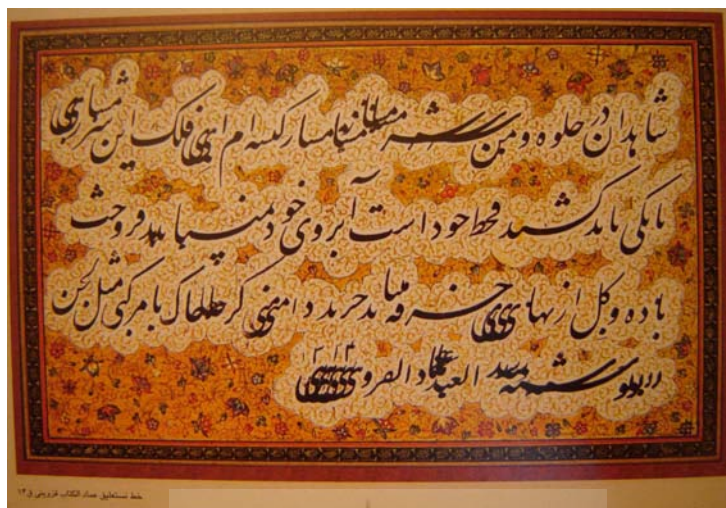 شاهدان در جلوه و من شرمسار کیسه ام ای فلک این شرمساری
تا بکی باید کشید قحط جود است آبروی خود نمیباید فروخت
باده و گل از بهای خرقه میباید خرید دامنی گر با مرکبی مثل لجن
نوشته شد العبد عماد القزوینی
خط نستعلیق عماد الکتاب قزوینی ق ۱۴